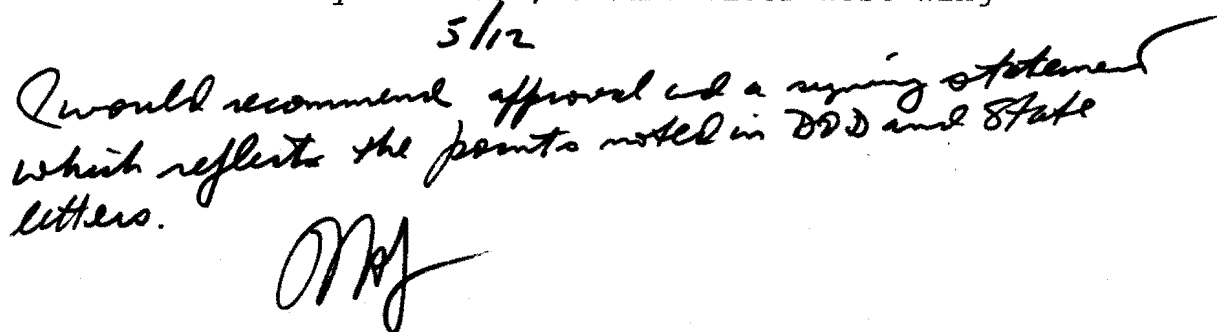 5/12
I would recommend approval and a signing statement
which reflects the points noted in DOD and State
letters.